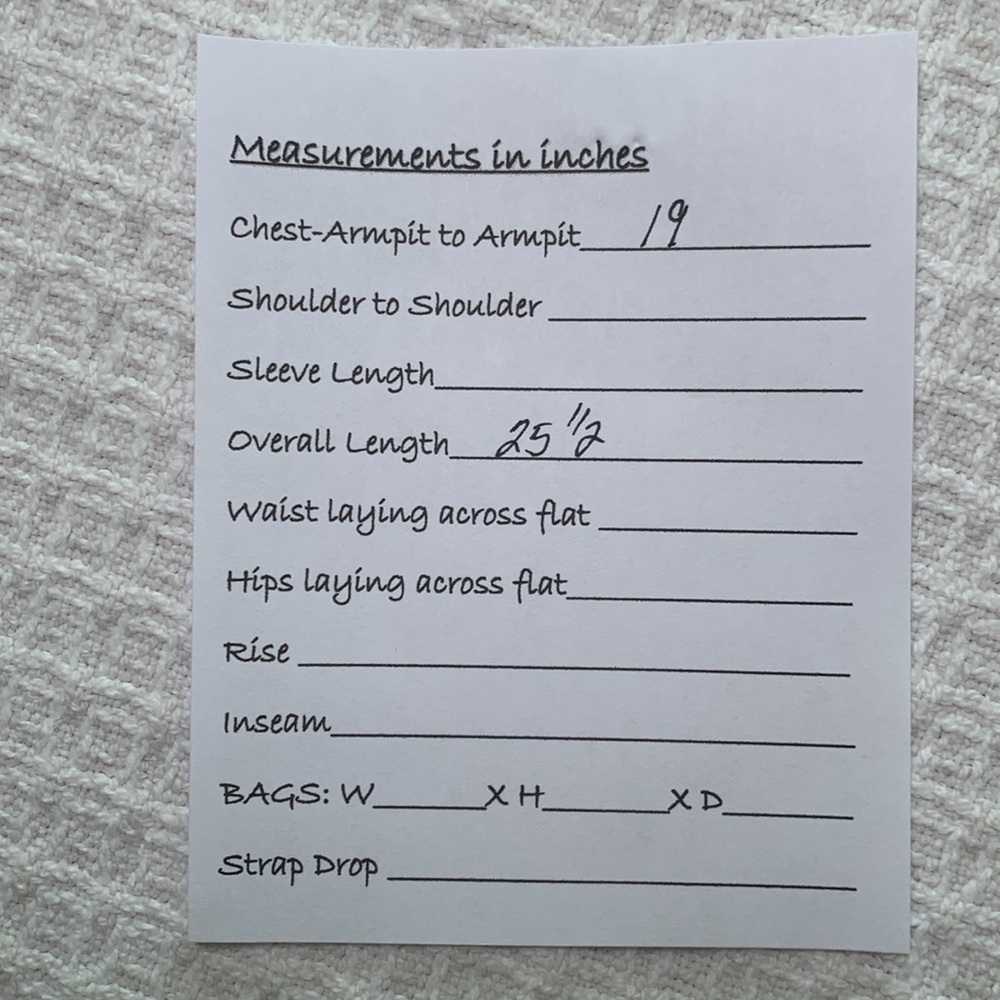 Measurements in inches
Chest-Armpit to Armpit 19
Shoulder to Shoulder
Sleeve Length
Overall Length 25 1/2
Waist laying across flat
Hips laying across flat
Rise
Inseam
BAGS: W______X H______X D______
Strap Drop